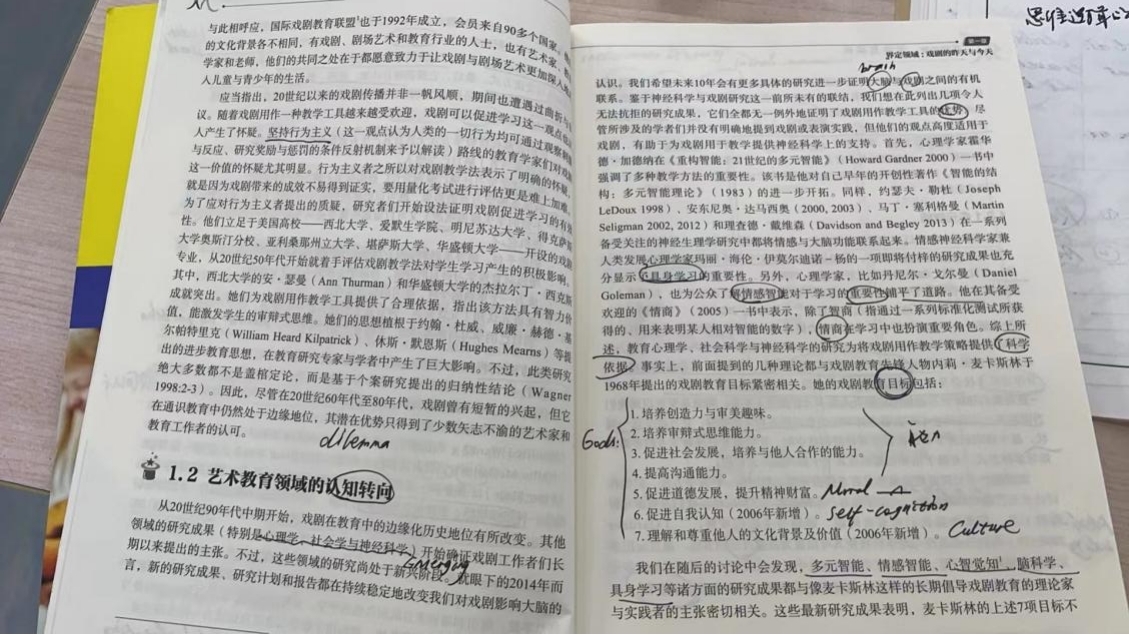 与此相呼应，国际戏剧教育联盟¹也于1992年成立，会员来自90多个国家
的文化背景各不相同，有戏剧、剧场艺术和教育行业的人士，也有艺术家、
学家和老师，他们的共同之处在于都愿意致力于让戏剧与剧场艺术更加深入
人儿童与青少年的生活。
应当指出，20世纪以来的戏剧传播并非一帆风顺，期间也遭遇过曲折与
议。随着戏剧用作一种教学工具越来越受欢迎，戏剧可以促进学习这一观点
人产生了怀疑。坚持行为主义（这一观点认为人类的一切行为均可通过观察刺激
与反应、研究奖励与惩罚的条件反射机制来予以解读）路线的教育学家们对
这一价值的怀疑尤其明显。行为主义者之所以对戏剧教学法表示了明确的怀疑，
就是因为戏剧带来的成效不易得到证实，要用量化考试进行评估更是难上加难。
为了应对行为主义者提出的质疑，研究者们开始设法证明戏剧促进学习的有效
性。他们立足于美国高校——西北大学、爱默生学院、明尼苏达大学、得克萨斯
大学奥斯汀分校、亚利桑那州立大学、堪萨斯大学、华盛顿大学——开设的戏剧
专业，从20世纪50年代开始就着手评估戏剧教学法对学生学习产生的积极影响。
其中，西北大学的安·瑟曼（Ann Thurman）和华盛顿大学的杰拉尔丁·西克斯
成就突出。她们为戏剧用作教学工具提供了合理依据，指出该方法具有智力价
值，能激发学生的审辩式思维。她们的思想植根于约翰·杜威、威廉·赫德·基
尔帕特里克（William Heard Kilpatrick）、休斯·默恩斯（Hughes Mearns）等提
出的进步教育思想，在教育研究专家与学者中产生了巨大影响。不过，此类研究
绝大多数都不是盖棺定论，而是基于个案研究提出的归纳性结论（Wagner
1998:2-3）。因此，尽管在20世纪60年代至80年代，戏剧曾有短暂的兴起，但它
在通识教育中仍然处于边缘地位，其潜在优势只得到了少数矢志不渝的艺术家和
教育工作者的认可。
dilemma
1.2 艺术教育领域的认知转向
从20世纪90年代中期开始，戏剧在教育中的边缘化历史地位有所改变。其他
领域的研究成果（特别是心理学、社会学与神经科学）开始确证戏剧工作者们长
期以来提出的主张。不过，这些领域的研究尚处于新兴阶段。就眼下的2014年而
emerging
言，新的研究成果、研究计划和报告都在持续稳定地改变我们对戏剧影响大脑的
第一章
界定领域：戏剧的昨天与今天
brain
认识。我们希望未来10年会有更多具体的研究进一步证明大脑与戏剧之间的有机
联系。鉴于神经科学与戏剧研究这一前所未有的联结，我们想在此列出几项令人
无法抗拒的研究成果，它们全都无一例外地证明了戏剧用作教学工具的优势。尽
管所涉及的学者们并没有明确地提到戏剧或表演实践，但他们的观点高度适用于
戏剧，有助于为戏剧用于教学提供神经科学上的支持。首先，心理学家霍华
德·加德纳在《重构智能：21世纪的多元智能》（Howard Gardner 2000）一书中
强调了多种教学方法的重要性。该书是他对自己早年的开创性著作《智能的结
构：多元智能理论》（1983）的进一步开拓。同样，约瑟夫·勒杜（Joseph
LeDoux 1998）、安东尼奥·达马西奥（2000, 2003）、马丁·塞利格曼（Martin
Seligman 2002, 2012）和理查德·戴维森（Davidson and Begley 2013）在一系列
备受关注的神经生理学研究中都将情感与大脑功能联系起来。情感神经科学家兼
人类发展心理学家玛丽·海伦·伊莫尔迪诺-杨的一项即将付梓的研究成果也充
分显示了具身学习的重要性。另外，心理学家，比如丹尼尔·戈尔曼（Daniel
Goleman），也为公众了解情感智能对于学习的重要性铺平了道路。他在其备受
欢迎的《情商》（2005）一书中表示，除了智商（指通过一系列标准化测试所获
得的、用来表明某人相对智能的数字），情商在学习中也扮演重要角色。综上所
述，教育心理学、社会科学与神经科学的研究为将戏剧用作教学策略提供了科学
依据。事实上，前面提到的几种理论都与戏剧教育先锋人物内莉·麦卡斯林于
1968年提出的戏剧教育目标紧密相关。她的戏剧教育目标包括：
Goals:
1. 培养创造力与审美趣味。
2. 培养审辩式思维能力。
3. 促进社会发展，培养与他人合作的能力。
4. 提高沟通能力。
5. 促进道德发展，提升精神财富。Moral
6. 促进自我认知（2006年新增）。self-cognition
7. 理解和尊重他人的文化背景及价值（2006年新增）。Culture
我们在随后的讨论中会发现，多元智能、情感智能、心智觉知¹、脑科学、
具身学习等诸方面的研究成果都与像麦卡斯林这样的长期倡导戏剧教育的理论家
与实践者的主张密切相关。这些最新研究成果表明，麦卡斯林的上述7项目标不